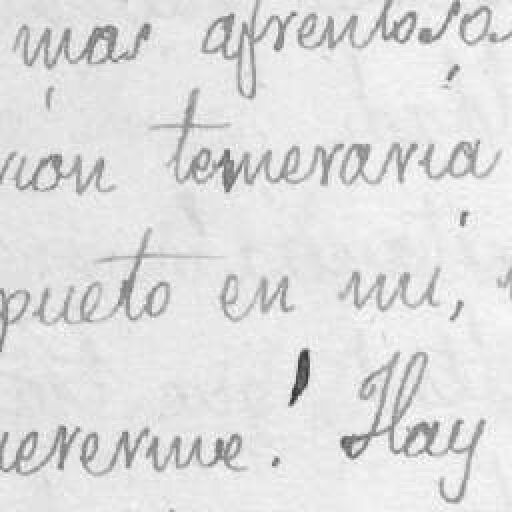 mas afrentosa
ion temeraria
pueto en mi,
quererme! Hay